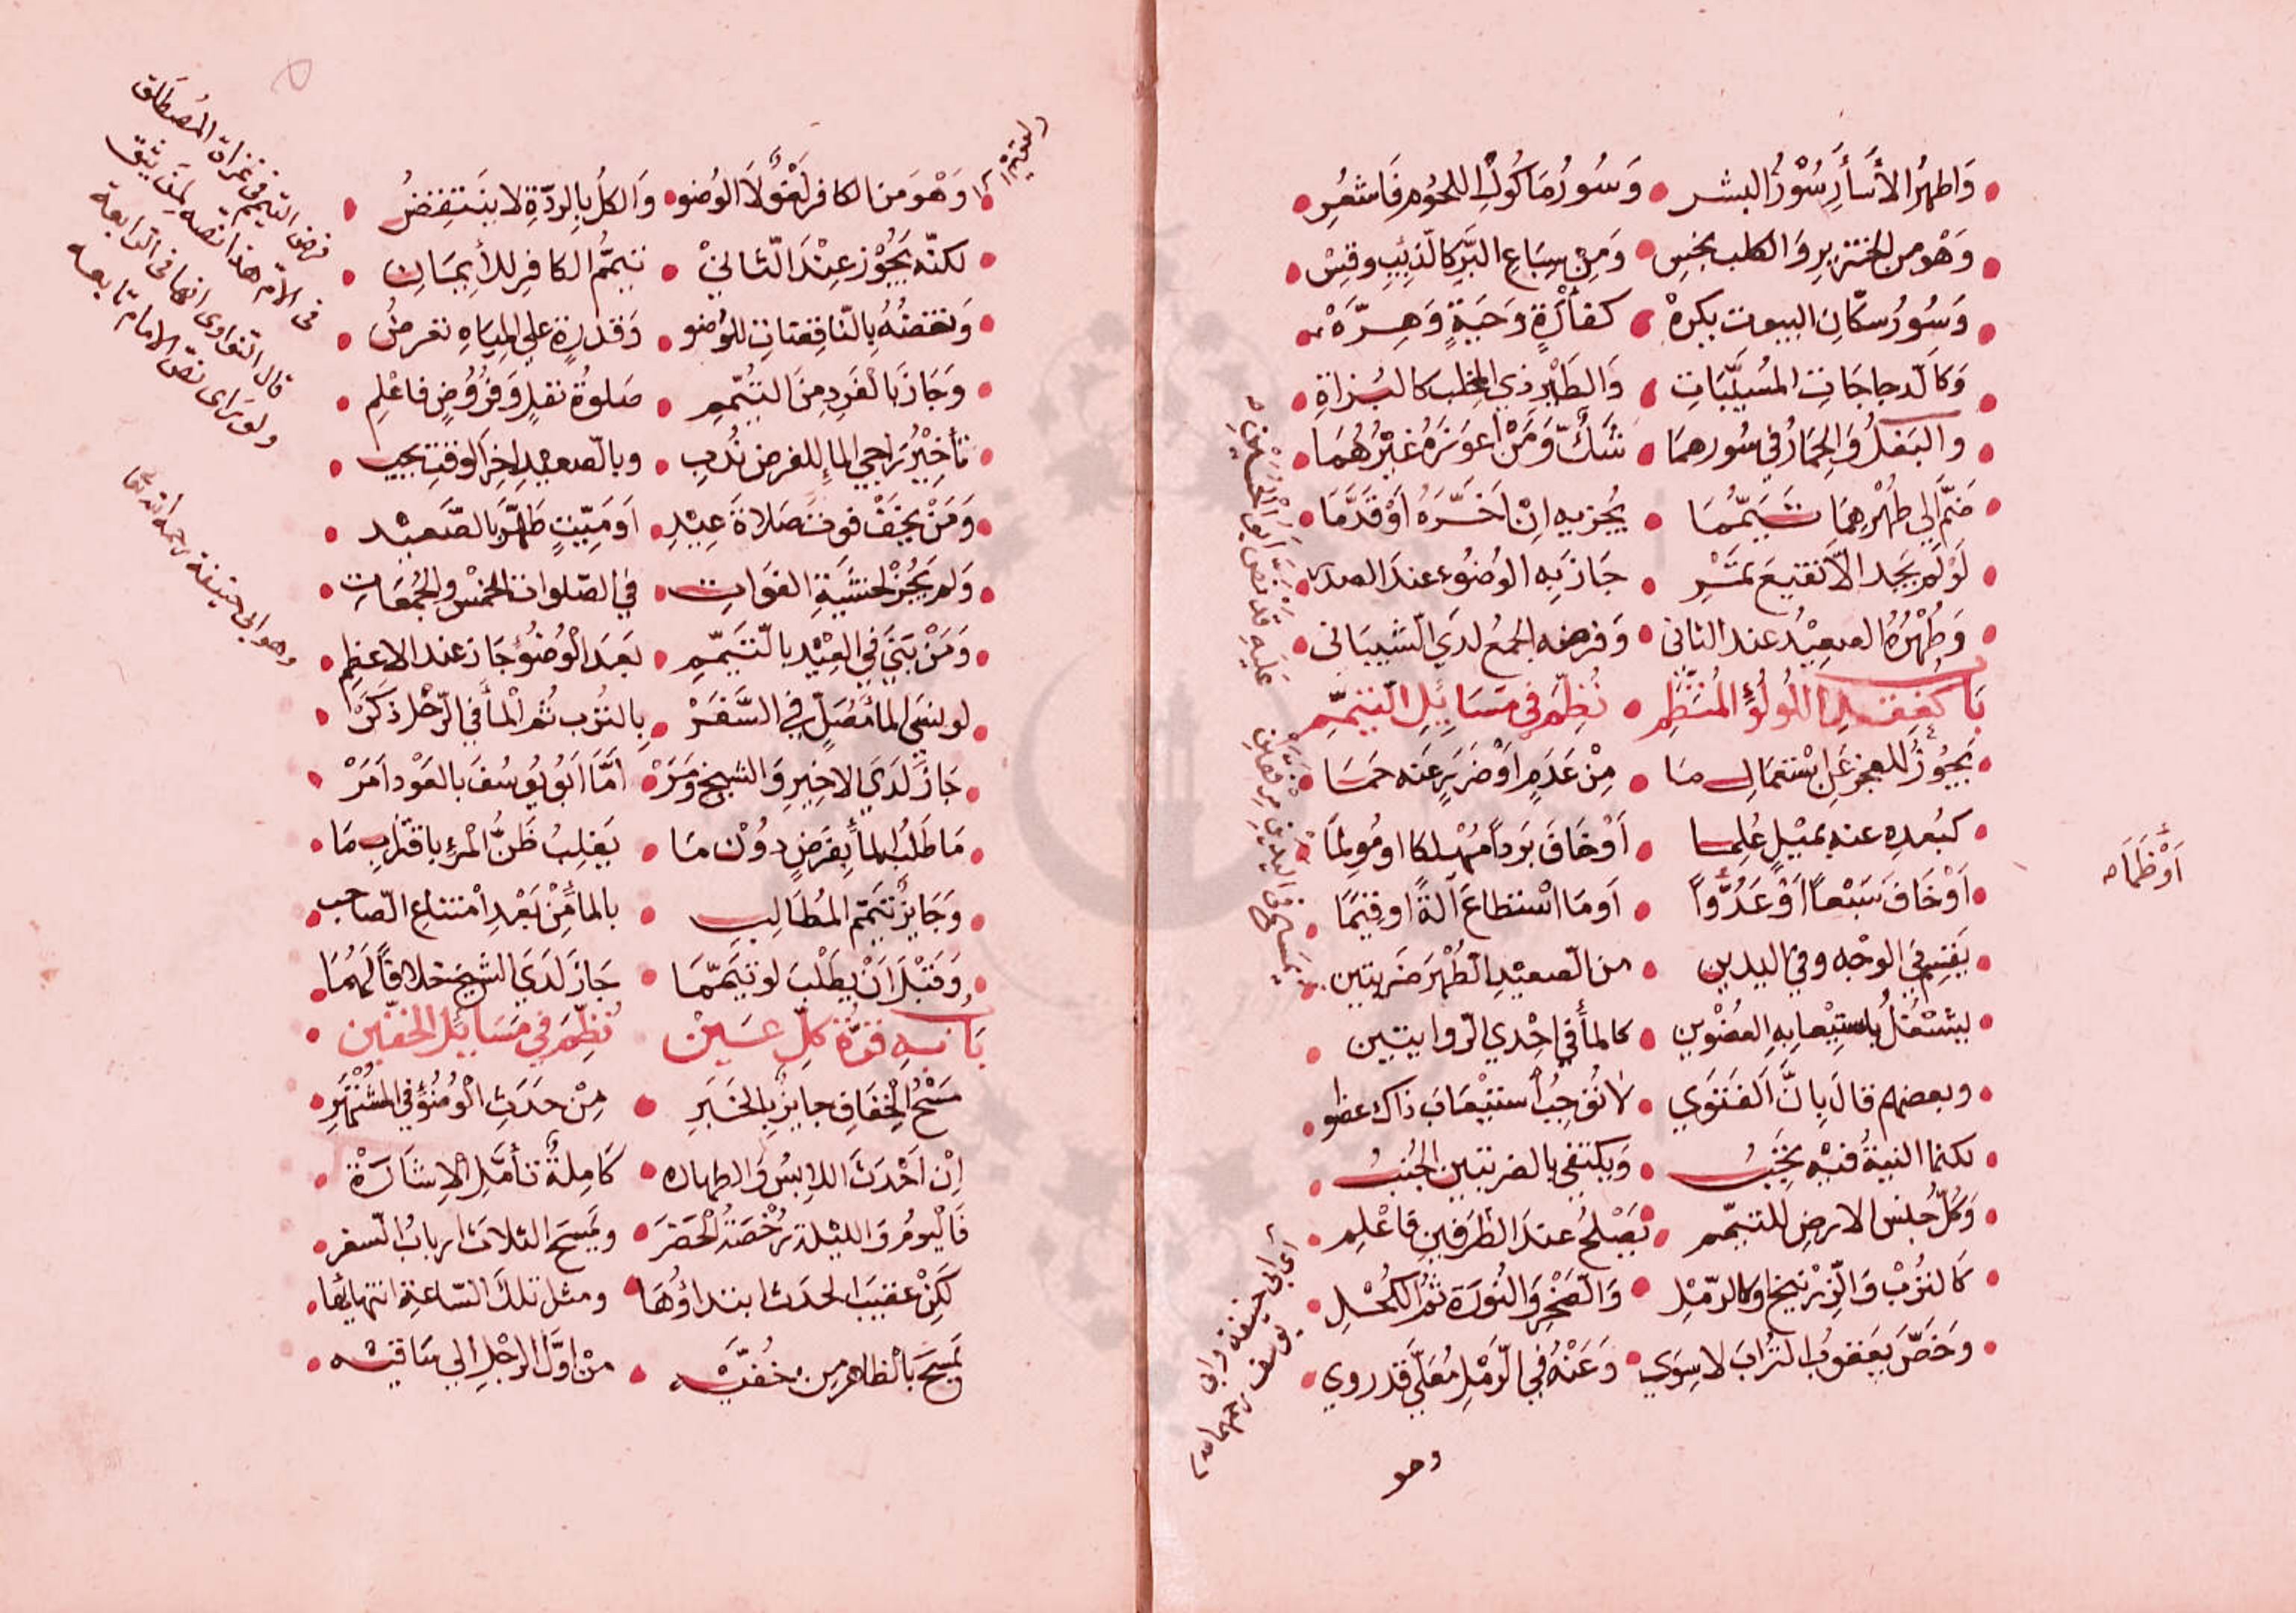 وَاطهرُ الأسأرِ سُؤرُ البشر • وَسُورُ مَاكُولِ اللحُومِ فَاشعُرِ
وَهْو من الخنزيرِ وَالكلب نجس • وَمِنْ سِبَاعِ البَرِّ كالذِيبِ وقِسْ
وَسُورُ سكّان البيوت يكره • كفأرَةٍ وَحَيةٍ وَهِرَّهْ
وَكالدجاجَاتِ المسُيَّبَاتِ • وَالطَيْرِ ذي المخلب كالبُزاةِ
والبَغلُ وَالحِمَارُ في سُورهمَا • شَكٌّ وَمَنْ اعوَزَهُ غيْرُهُمَا
ضَمَّ الى طُهْرِهِمَا تَيَمُّمَا • يُجزيهِ اِنْ اَخَّرَهُ اَوْ قَدَّمَا
لَوْ لَمْ يَجد الاّ نقيعَ تمَرِ • جَازَ بِهِ الوُضُوء عندَ الصدر
وَطُهْرُهُ الصعِيْدُ عند الثانى • وَفرضه الجمعُ لدَي الشَيبَانى
بَابٌ كَعِقدِ اللُولُؤِ المُنتَظِمِ • نُظِّمَ فى مَسَايِلِ التيَمُّمِ
يَجُوزُ للعجزِ عَنِ اسْتعمَالِ مَا • مِنْ عَدَمٍ اَوْ ضَرَرٍ عَنه حمَا
كبُعدِهِ عنه بميْلٍ عُلِمَا • اَوْ خَافَ بَرداً مُهْلِكا او مُولِمَا
اَوْ خَافَ سَبْعاً اَوْ عَدُوّاً اَوْ ظَمَاَ • اَو مَا اسْتطاعَ الَةً او قِيَمَا
يَقتَسِمُ الوَجْه وفي اليدين • من الصعيْدِ الطُهْرَ ضَربتين
ليشتغلُ باستِيْعابِهِ العضْوين • كالمأ فى اِحْدي الرّوايتين
وبعضهم قالَ بِاَنَّ الفَتوَي • لا تُوجِبُ استيْعَابَ ذاك عضوا
لكنما النية فيه تَجُبُ • وَيكتفى بالضربتين الجُنُبُ
وَكُلّ جنس الارضِ للتيمّم • يَصْلحُ عندَ الطَرَفينِ فاعْلِم
كَالتُرْبِ وَالزِرْنيخ او كالرّمْلِ • وَالصّخرِ وَالنُورَة ثمّ الكُحْلِ
وَخَصَّ يَعقوبُ التُرابَ لا سِوَي • وَعَنْهُ في الرَّمْلِ مُعَلّيً قد روي
اَوْ ظَمَأ صح
اى ابى حنيفة وابى
يوسف رحمهما الله
وهو
وَهْوَ منَ الكافر لَغْوٌ لاَ الوُضو • وَالكلُّ بِالرِدّةِ لا ينَتقِضُ
لكنّه يَجُوْز عِنْدَ الثاني • تيَممُّ الكافرِ للأيمَانِ
وَنقضُهُ بِالنّاقِضَاتِ للوُضو • وَقدرَةٍ علي المِيَاهِ تعرضُ
وَجَازَ بالفَردِ مِنَ التيُمّمِ • صَلوةُ نفلٍ وَفُرُوضٍ فاعْلِمِ
تأخيْرُ رَاجي المَاءِ للفرض نُدب • وبالصعيدِ اخِرَ الوقتِ يجب
وَمَنْ يخَفْ فوتَ صَلاةَ عِيْدِ • اَو مَيّتٍ طَهَّرَ بالصّعيْد
وَلم يَجُزْ لخشَيَةِ الفوَاتِ • في الصّلوات الخمْسِ والجُمعَاتِ
وَمَنْ بَنىَ في العِيْد بالتيَمّمِ • بَعدَ الوُضؤ جَازَ عند الاعظِمِ
لو نسَى المأَ مُصَلٍّ في السَّفَرْ • بِالتُرب ثمّ المأ في الرّحْل ذكَرْ
جَازَ لدَي الاخِيرِ وَالشيخ وَمَرْ • اَمّا اَبُو يُوسُفَ بالعَوْد اَمَرْ
مَا طَلَبُ المأَ بِفَرضٍ دوُن مَا • يَغلِبُ ظَنُّ المرْءِ باقترابِ مَا
وَجَايزٌ تيَمّمُ المُطَالِبِ • بالمأَ مِنْ بَعْدِ امْتناعِ الصّاحب
وَقَبْلَ اَنْ يطَلْبَ لو تيَمّمَا • جَازَ لدَيَ الشيَخ خلافاً لهُمَا
بَابٌ بِهِ قرّةُ كلّ عَيْن • نُظّمَ فى مَسَايِلِ الخفّين
مَسْحُ الخِفَافِ جايزٌ بالخَبَرِ • مِنْ حدَثِ الوُضُوءِ في المشُتهَرِ
اِنْ اَحْدَثَ اللابِسُ وَالطهاره • كَامِلةٌ تأمَّلِ الاِشَارَة
فَاليَومُ وَالليْلة رُخْصَةُ الحَضَرَ • ويَمسَح الثلاثَ اَربابُ السّفر
لَكِنْ عقيبَ الحدَث ابتداؤهَا • ومثل تلكَ السّاعةِ انتهايُها
يَمسَحَ بالظاهر من خُفيَّه • منْ اوّلِ الرجْلِ الي سَاقيْه
فرض التيمّم فى غزاة المُصطَلَق
فى الامّ هذا نصه لمن يثق
قال النواوى انها فى الرابعة
ولو راى نصّ الامام تابعه
وهو ابى حنيفة رحمه الله تعالى